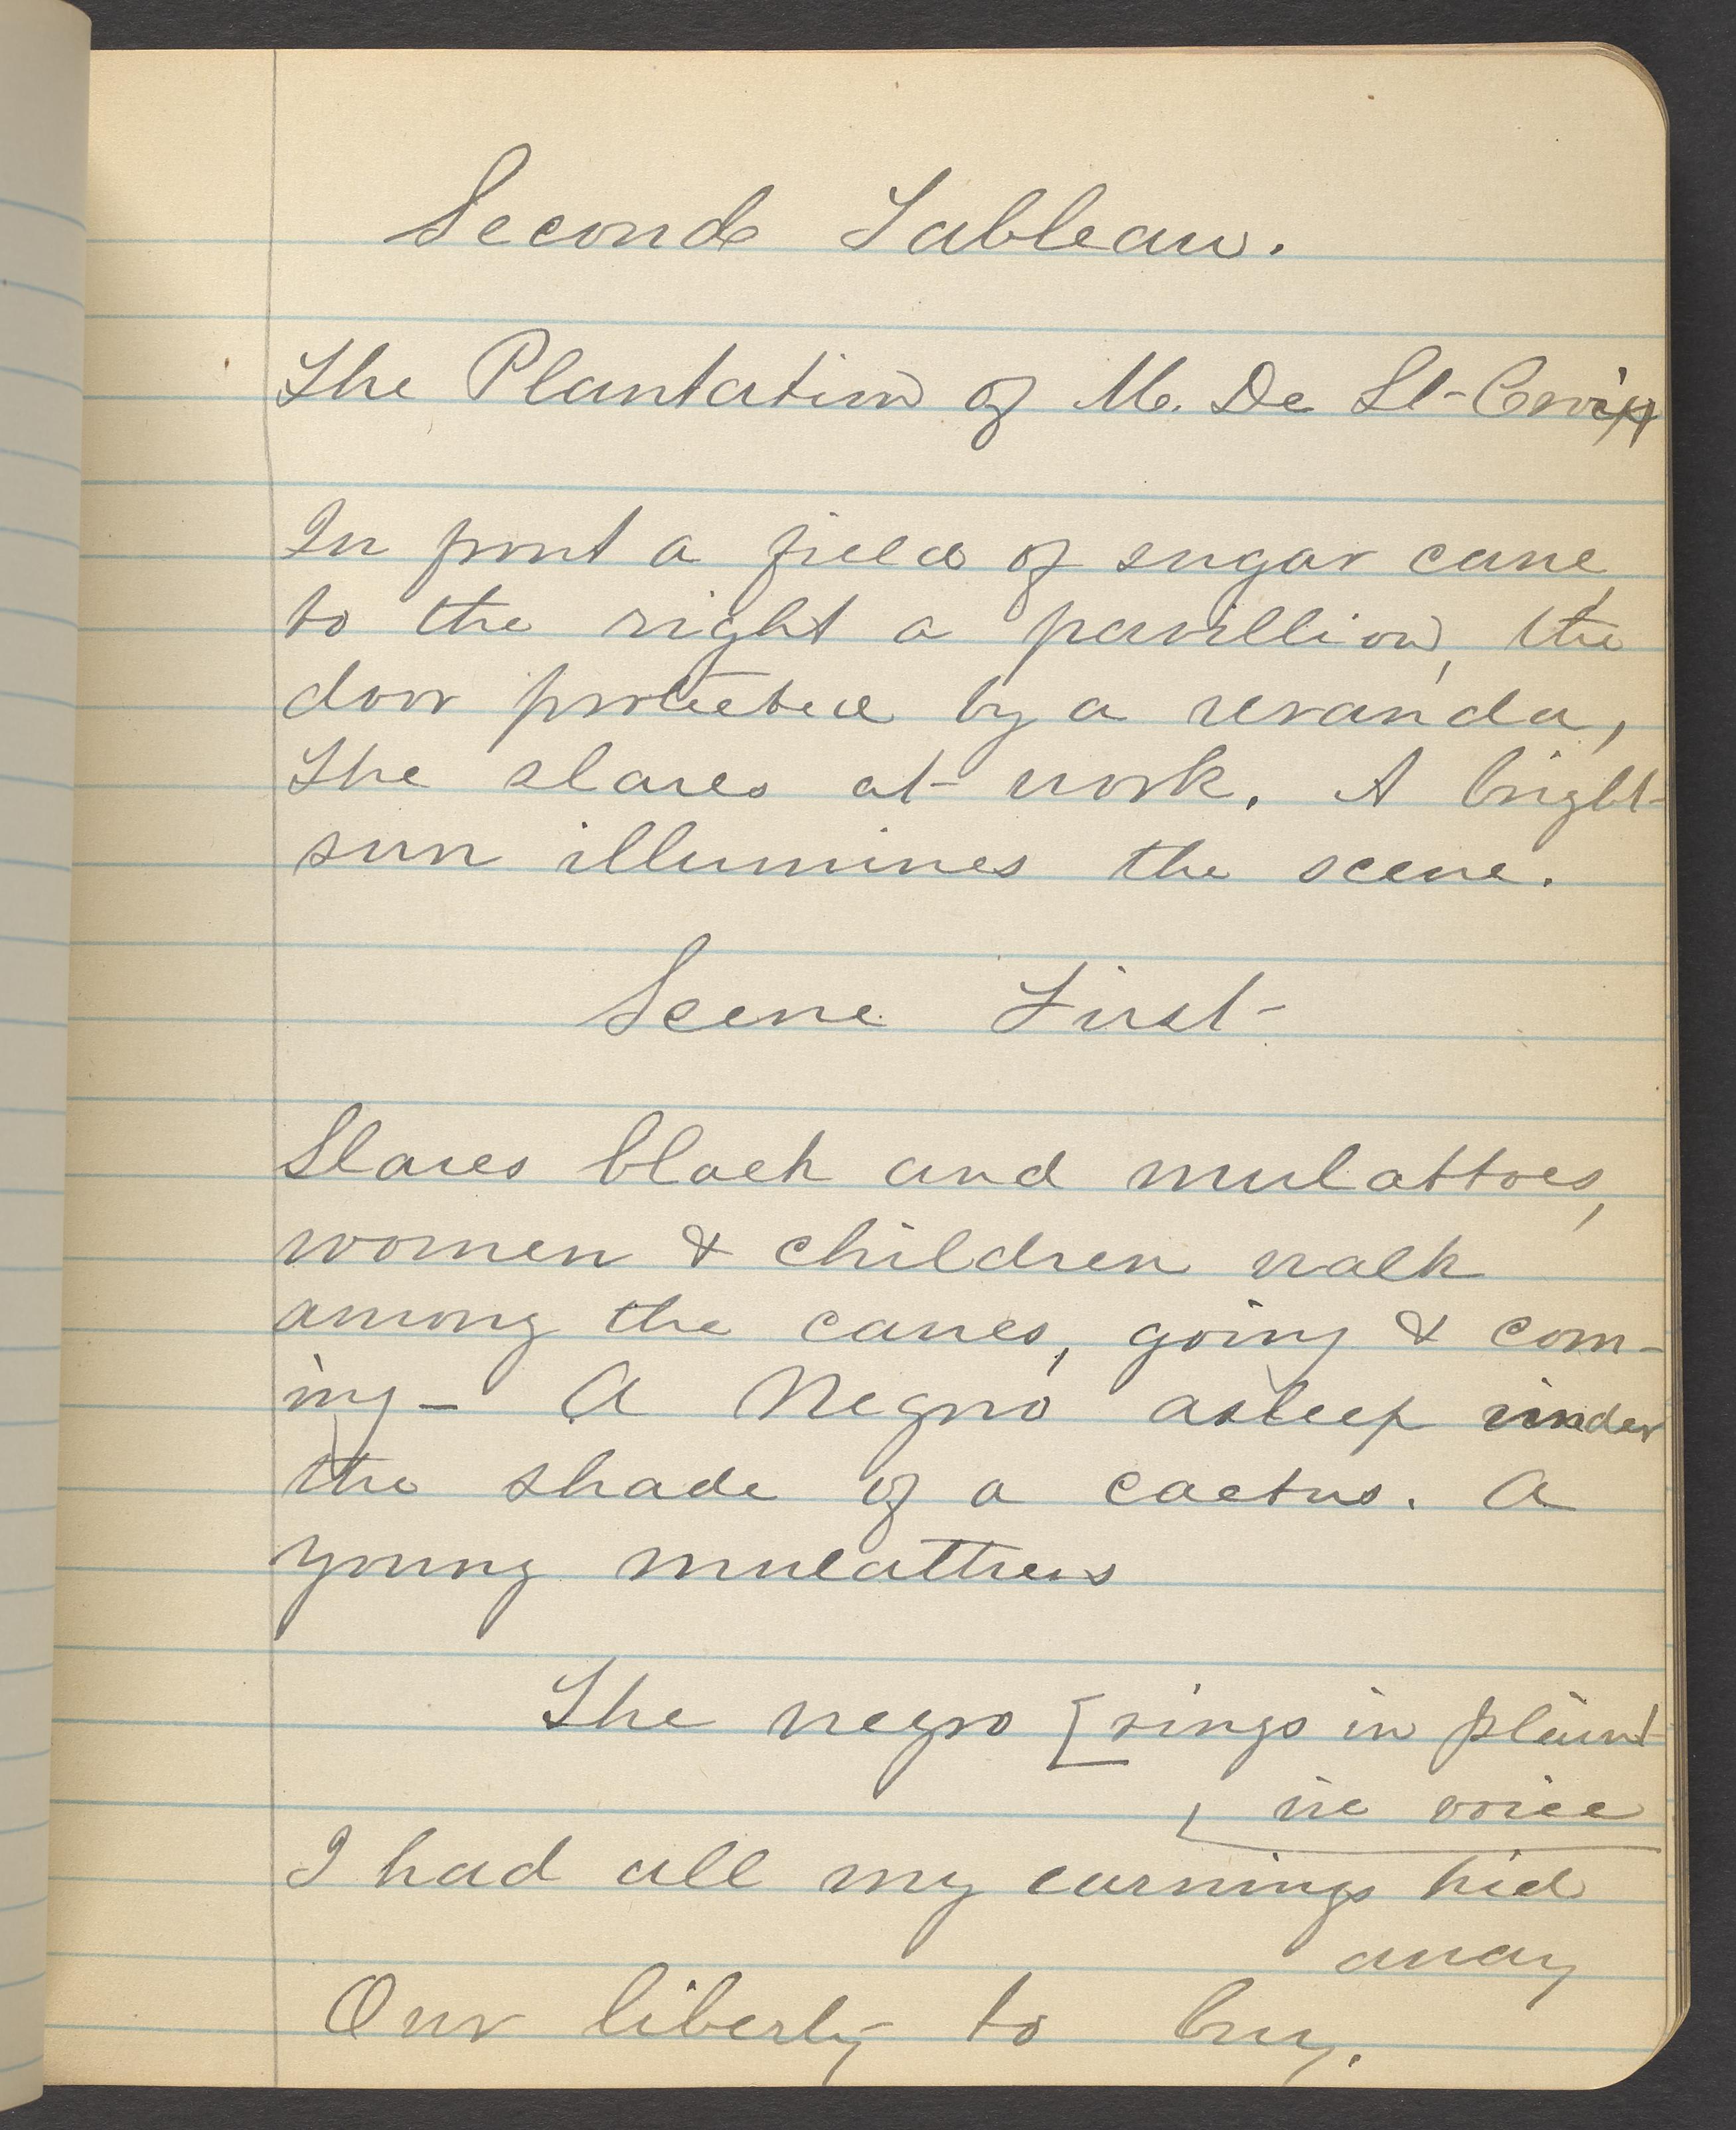 Second Tableau.
The Plantation of M. De St-Croix
In front a field of sugar cane,
to the right a pavillion, the
door protected by a veranda,
the slaves at work. A bright
sun illumines the scene.
Scene First
Slaves black and mulattoes,
women & children walk
among the canes, going & com-
ing - A Negro asleep under
the shade of a cactus. A
young mulattress
The negro [sings in plaint
ive voice
I had all my earnings hid
away
Our liberty to buy.